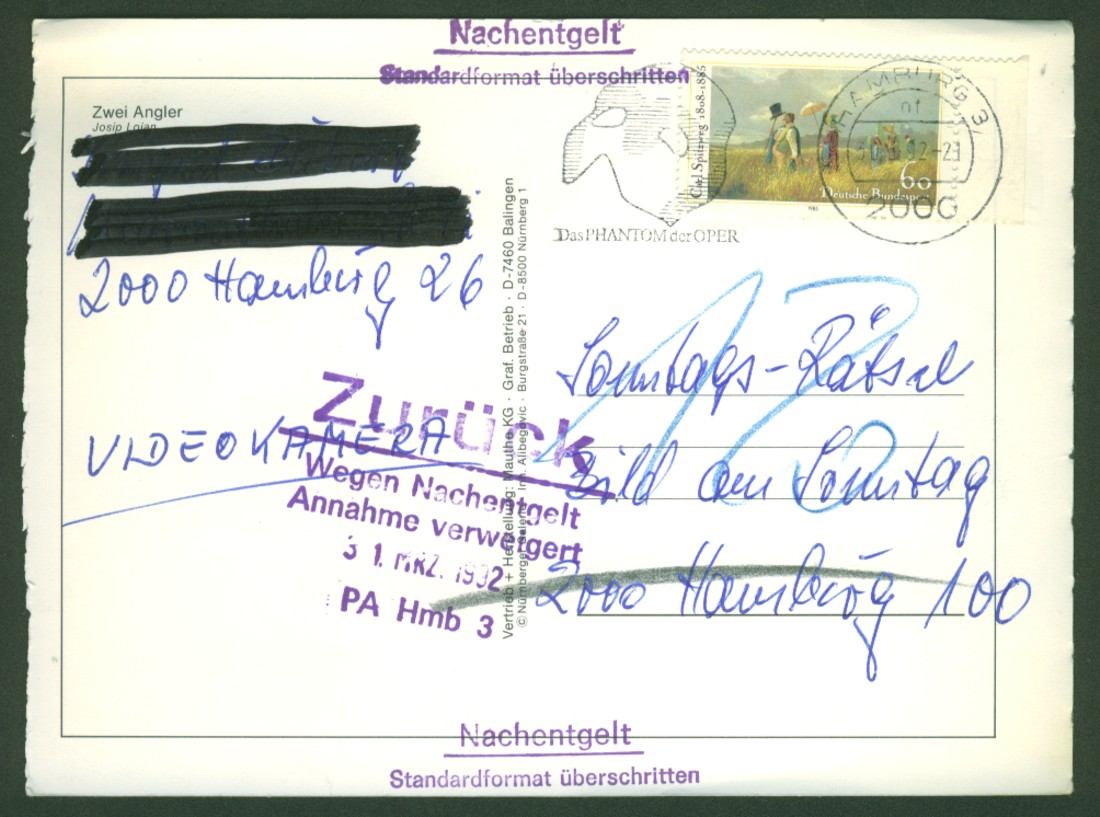 Nachentgelt
Standardformat überschritten
Zwei Angler
Carl Spitzweg 1808-1885
60
Deutsche Bundespost
HAMBURG 3
2000
Das PHANTOM der OPER
2000 Hamburg 26
VIDEOKAMERA
Zurück
Wegen Nachentgelt
Annahme verweigert
31. MRZ. 1992
PA Hmb 3
Vertrieb + Herstellung: Mauthe KG · Graf. Betrieb · D-7460 Balingen
© Nürnberger Galerie Inh. Alibegovic · Burgstraße 21 · D-8500 Nürnberg 1
Sonntags-Rätsel
Bild am Sonntag
2000 Hamburg 100
Nachentgelt
Standardformat überschritten